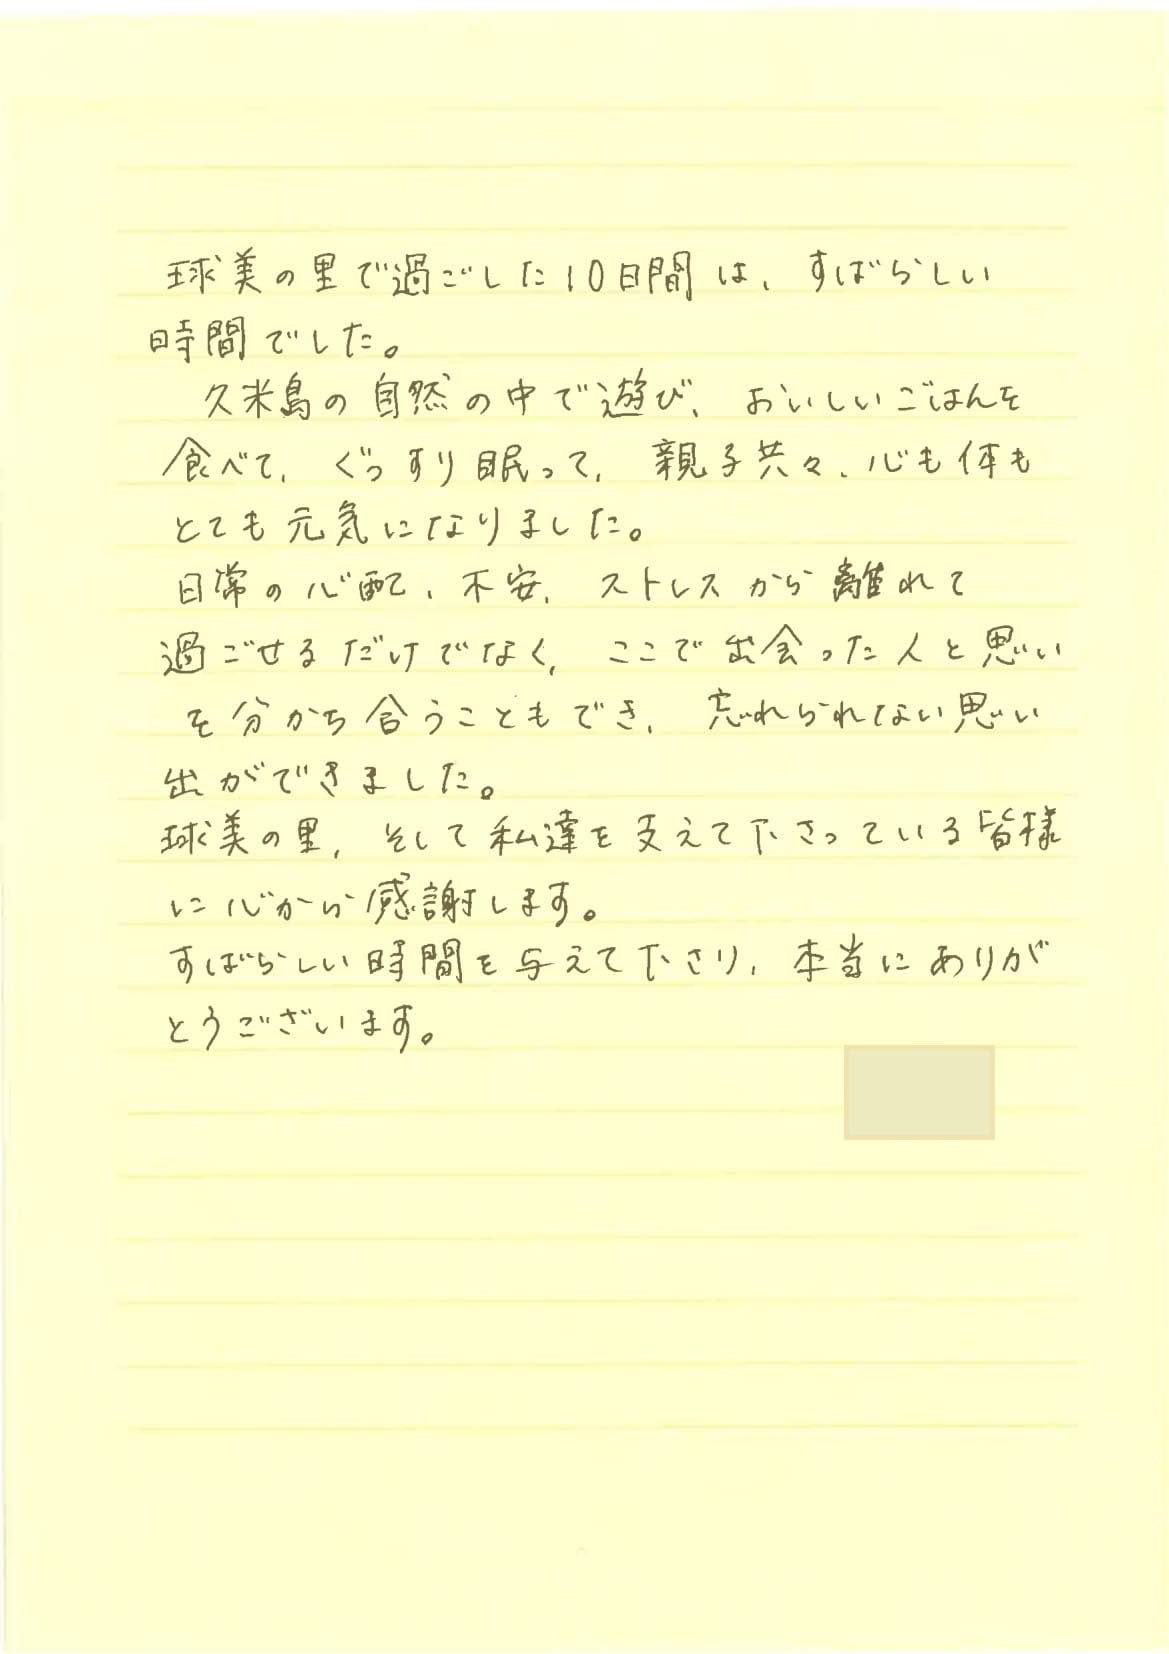 球美の里で過ごした10日間は、すばらしい
時間でした。
久米島の自然の中で遊び、おいしいごはんを
食べて、ぐっすり眠って、親子共々、心も体も
とても元気になりました。
日常の心配、不安、ストレスから離れて
過ごせるだけでなく、ここで出会った人と思い
を分かち合うこともでき、忘れられない思い
出ができました。
球美の里、そして私達を支えて下さっている皆様
に心から感謝します。
すばらしい時間を与えて下さり、本当にありが
とうございます。